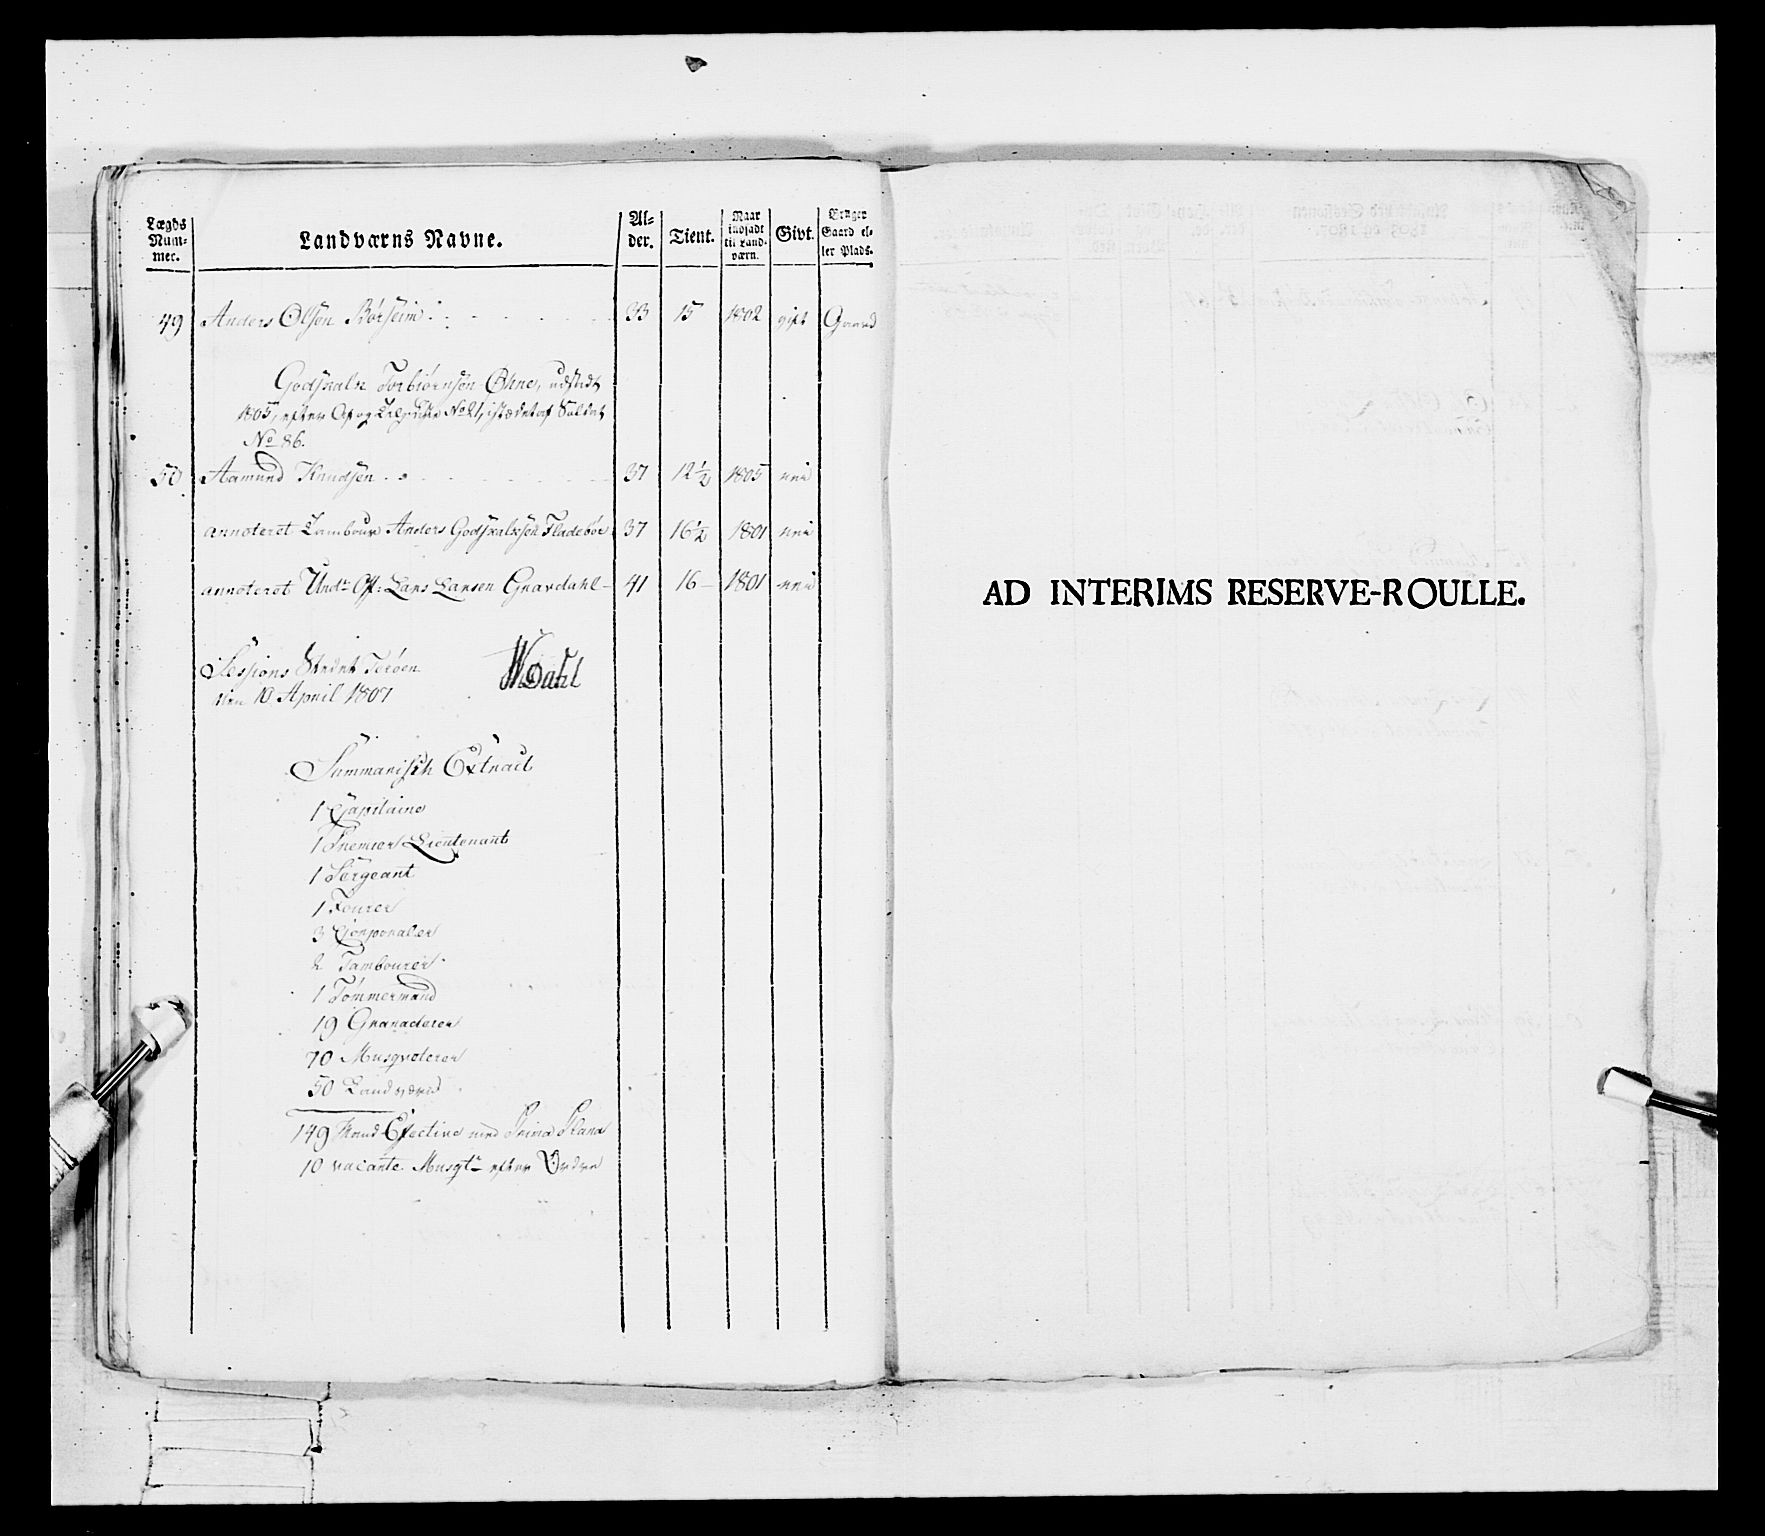 Lægds Num- mer. | Landværns Navne. | Al- der. | Tient. | Naar indsadt til Land- værn. | Givt. | Bruger Gaard el- ler Plads.
49 Anders Olsen Børseim 33 15 1802 gift Gaard
Godskalk Torbiørnsøn Øhne, udstædt
1805, efter Af og Tilgange No 21, istædet af Soldat
No 86.
50 Aamund Knudsen 37 12½ 1805 nei
annoteret Tambour Anders Godskalksen Fladebøe 37 16½ 1801 nei
annoteret Undr Off: Lars Larsen Gravdahl 41 16 1801 nei
Sessions Stedet Terøen
den 10 April 1807
WDahl
Summarisch Extract
1 Capitaine
1 Premier Lieutenant
1 Sergeant
1 Fourer
3 Corporaler
2 Tambourer
1 Tømmermand
19 Granaderer
70 Musqveterer
50 Landværn
149 Mand Efective med Prima Plana
10 vacante Musqtr efter Ordre
AD INTERIMS RESERVE-ROULLE.